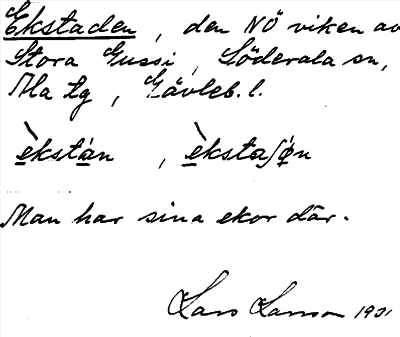 Ekstaden, den NÖ viken av
Stora Gussi, Söderala sn,
Ala tg, Gävleb. l.
èkstán, èkstaʃǿn
Man har sina ekor där.
Lars Larsson 1931